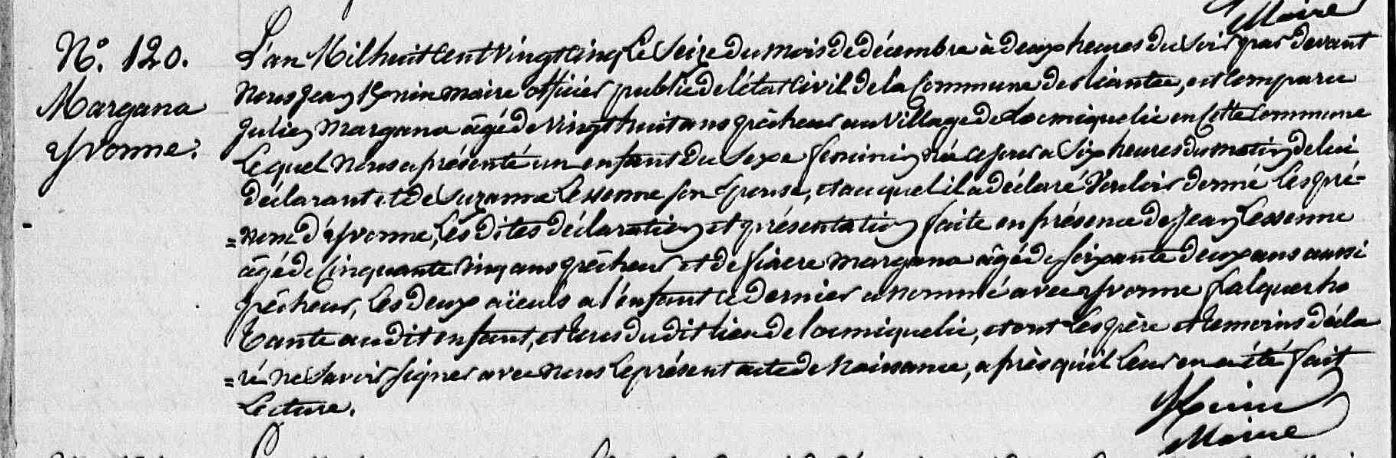 Maire
N°. 120.
Margana
yvonne.
L'an Mil huit Cent vingt cinq Le Seize du mois de décembre à deux heures du soir par devant
Nous Jean maire officier public de létat Civil de la Commune de Riantec, est Comparu
Julien Margana âgé de vingt huit ans pêcheur au Village de Locmiquelic en Cette Commune
Lequel Nous a présenté un enfant du Sexe féminin née ce jour a Six heures du matin de lui
déclarant et de Suzanne Lessenne Son Epouse, et auquel il a déclaré Vouloir donné Les pré-
=nom d'yvonne, Les dites déclaration et présentation faite en présence de Jean Lessenne
âgé de Cinquante cinq ans pêcheur et de fiacre margana âgé de soixante deux ans aussi
pêcheur, Les deux aïeuls a l'enfant ce dernier a nommé avec yvonne falquerho
tante au dit enfant, et tous du dit lieu de locmiquelic, et ont Les père et temoins décla
=ré ne savoir signer avec nous Le présent acte de Naissance, après qu'il leur en a été fait
Lecture.
Maire